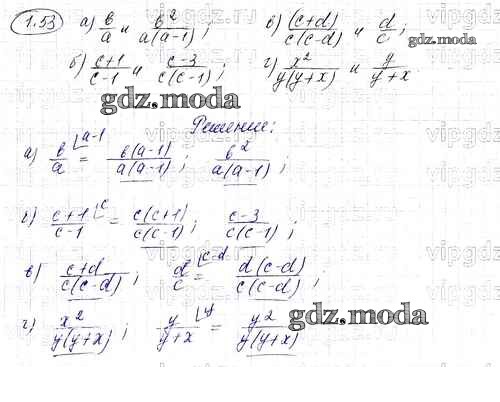 1.53 а) в/а и в²/а(а-1) ; в) (c+d)/c(c-d) и d/c ;
б) c+1/c-1 и c-3/c(c-1) ; г) x²/y(y+x) и y/y+x
gdz.moda
gdz.moda
Решение:
а) в/а ⌊а-1 = в(а-1)/а(а-1) ; в²/а(а-1) ;
б) c+1/c-1 ⌊c = c(c+1)/c(c-1) ; c-3/c(c-1) ;
в) c+d/c(c-d) ; d/c ⌊c-d = d(c-d)/c(c-d) ;
г) x²/y(y+x) ; y/y+x ⌊y = y²/y(y+x)
gdz.moda